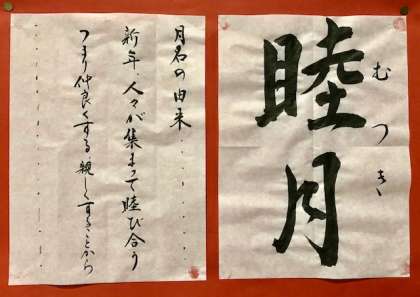 睦月
むつき
月名の由来
新年、人々が集まって睦び合う
つまり仲良くする、親しくすることから